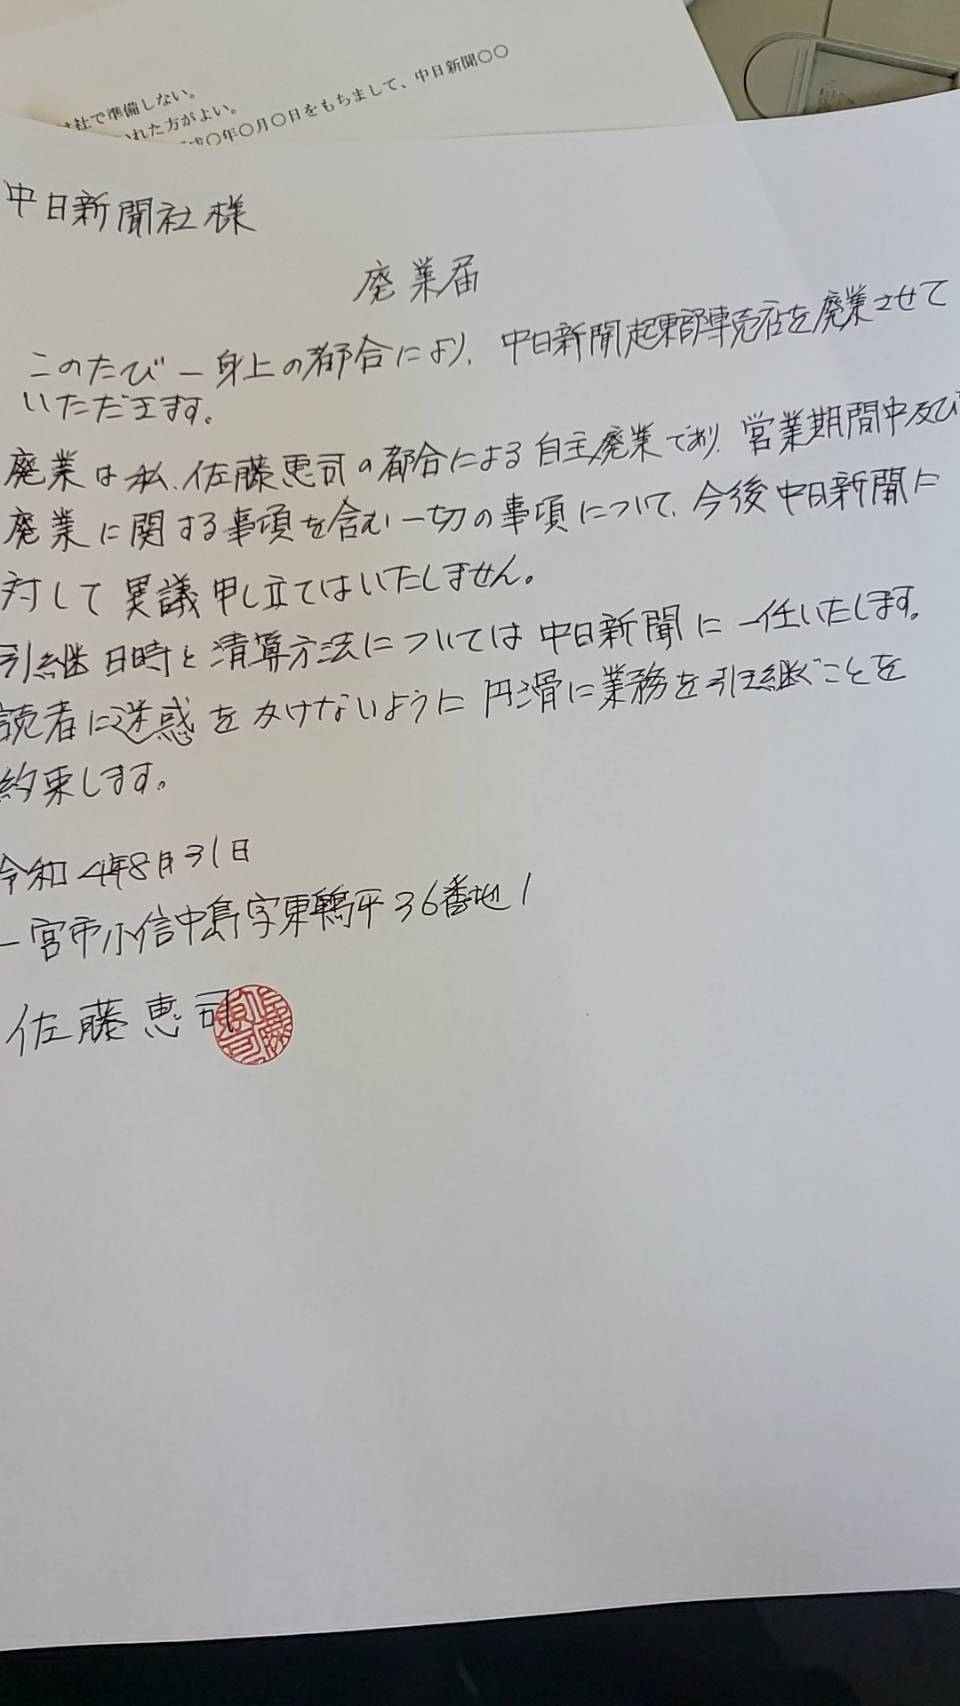 社で準備しない。
れた方がよい。
〇年〇月〇日をもちまして、中日新聞〇〇
中日新聞社様
廃業届
このたび一身上の都合により、中日新聞起東部専売店を廃業させて
いただきます。
廃業は私、佐藤恵司の都合による自主廃業であり、営業期間中及び
廃業に関する事項を含む一切の事項について、今後中日新聞に
対して異議申し立てはいたしません。
引継日時と清算方法については中日新聞に一任いたします。
読者に迷惑をかけないように円滑に業務を引継ぐことを
約束します。
令和4年8月31日
一宮市小信中島字東鵯平36番地1
佐藤恵司